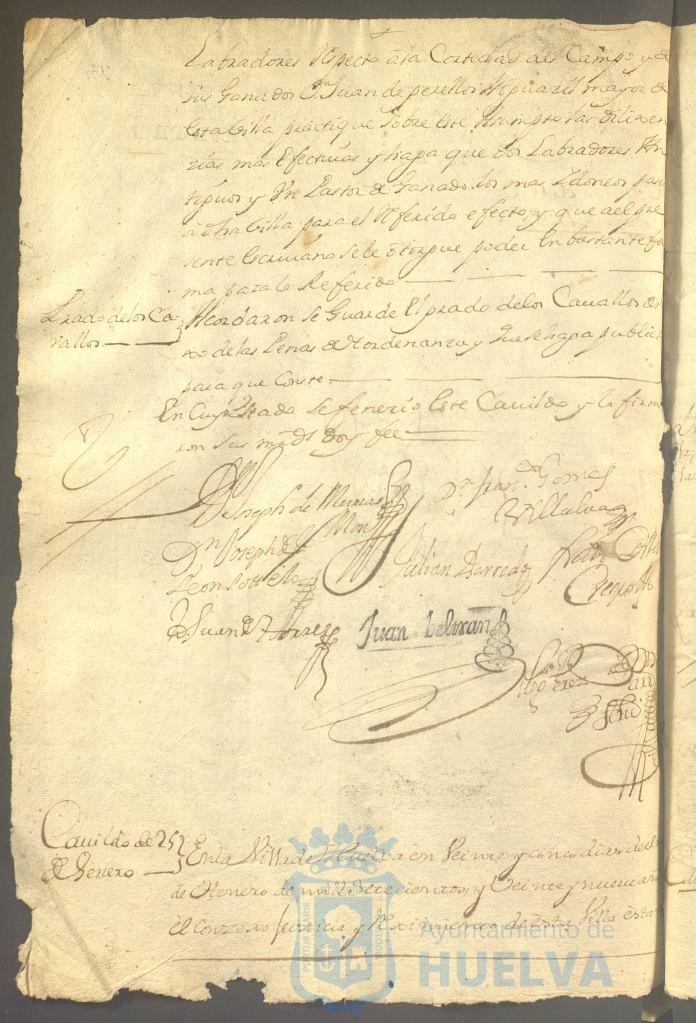 Labradores respecto a la Cortedad del Campo y de
sus Ganados Dn Juan de perellos Alguazil mayor de
esta Villa practique sobre este Asumpto las dilixen
zias mas efectivas y haga que dos Labradores An
tiguos y Un Pastor de Ganado los mas Ydoneos pa
a dha Villa para el referido efecto, y que a el pre
sente Escrivano se le otorgue poder En bastante fo
ma para lo Referido
Prado de los Ca
vallos
Acordaron se Guarde El prado de los Cavallos
vxo de las Penas de Hordenanza y que se haga public
para que Conste
En Cuyo estado se fenezio este Cavildo y lo firm
ron sus mds doy fee
Dn Joseph de
Dn Fran.co Gomes
Villalva
Dn Joseph de
Leon
Julian Barreda
D. Juan de Torres
Juan beltran
Perez
Cavildo de 25
de Henero
En la Villa de Huelva en Veinte y cinco dias del
de Henero de mill Setecientos y Veinte y nueve an
el Conzexo Justicia y Reximiento de esta Villa esta
PORTUS MARIS
CUSTODIA
Ayuntamiento de
HUELVA